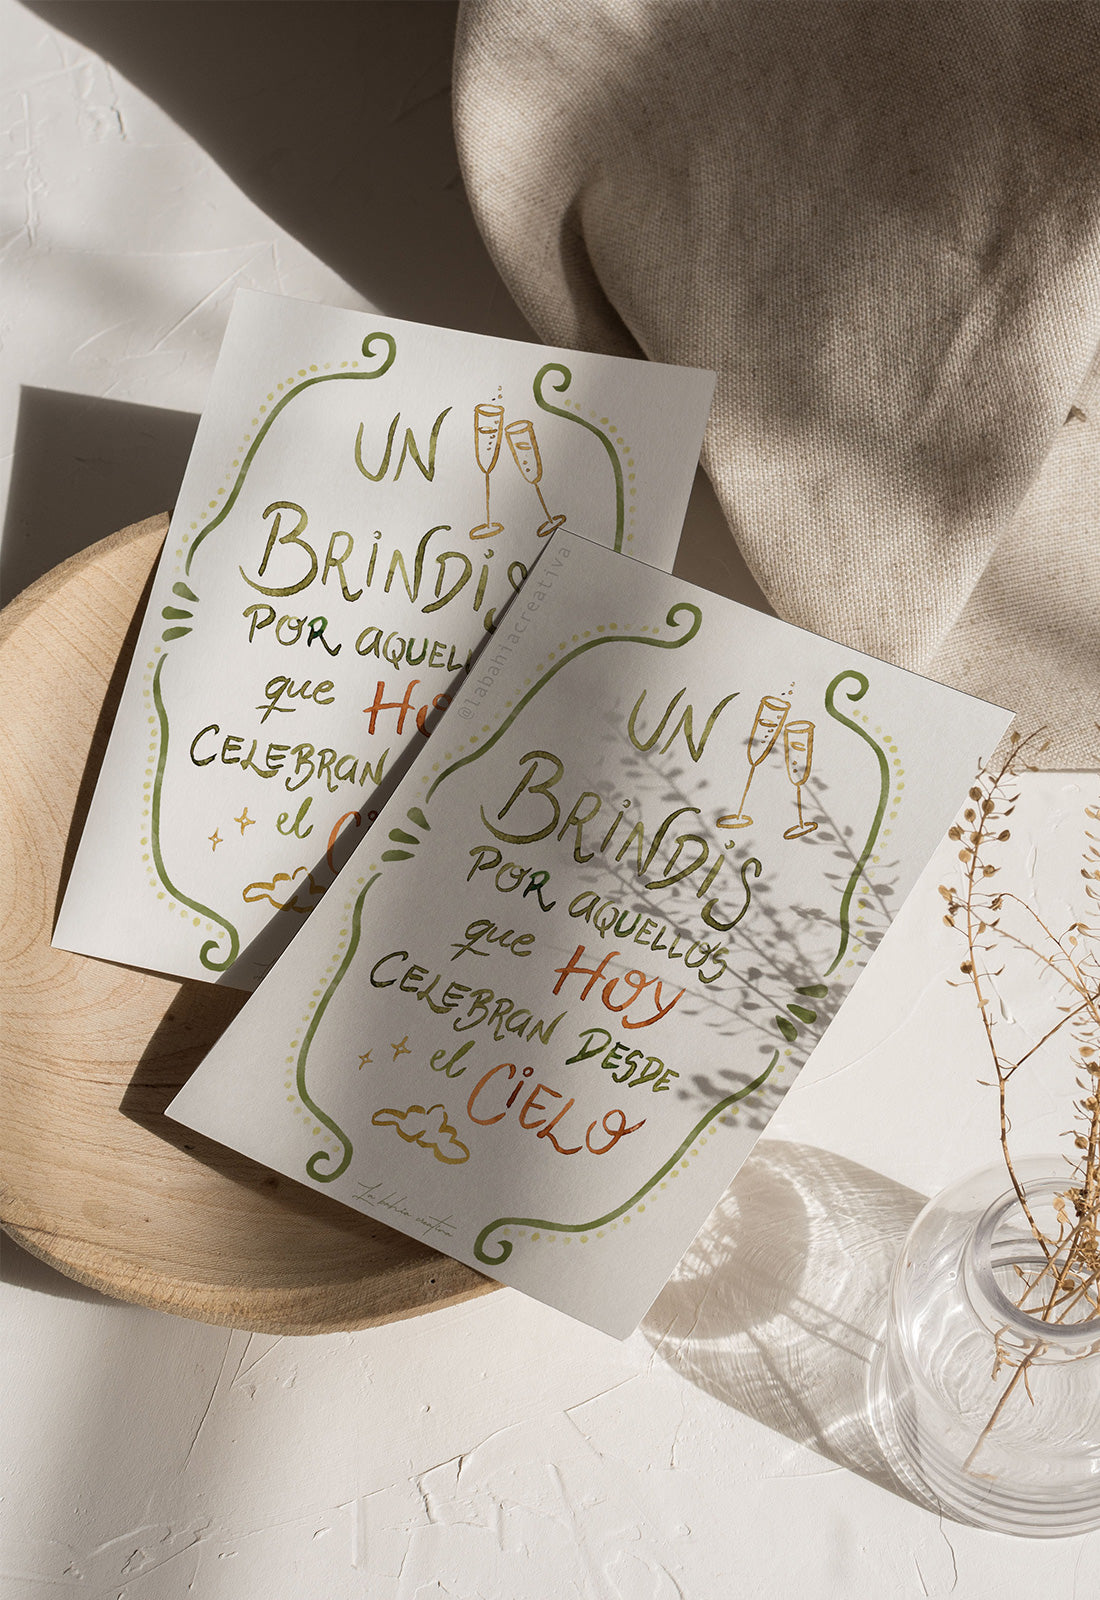 UN
BRINDIS
POR AQUELL
que HO
CELEBRAN
el
@labahiacreativa
UN
BRINDIS
POR AQUELLOS
que HOY
CELEBRAN DESDE
el CIELO
La bahía creativa